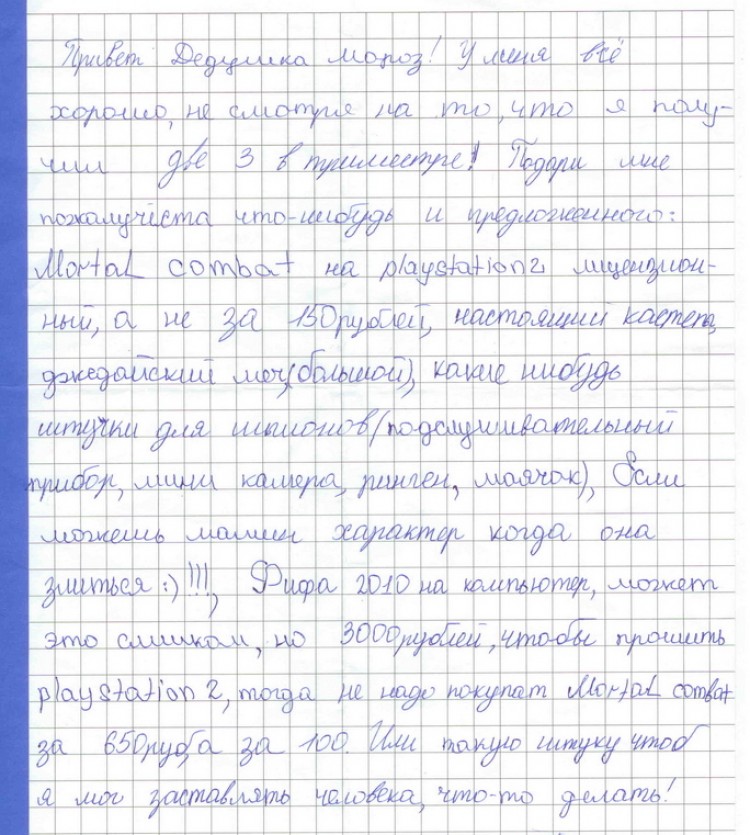 Привет Дедушка мороз! У меня всё
хорошо, не смотря на то, что я полу-
чил две 3 в триместре! Подари мне
пожалучйста что-нибудь и предложенного:
Mortal combat на playstation2 лицензион-
ный, а не за 150рублей, настоящий кастета,
джедайский меч(большой), какие нибудь
штучки для шпионов(подслушивательный
прибор, мини камера, ринген, маячок), Если
можешь мамин характер когда она
злиться :) !!!, Фифа 2010 на компьютер, может
это слишком, но 3000рублей, чтобы прошить
playstation 2, тогда не надо покупат Mortal combat
за 650руб,а за 100. Или такую штуку чтоб
я мог заставлять человека, что-то делать!